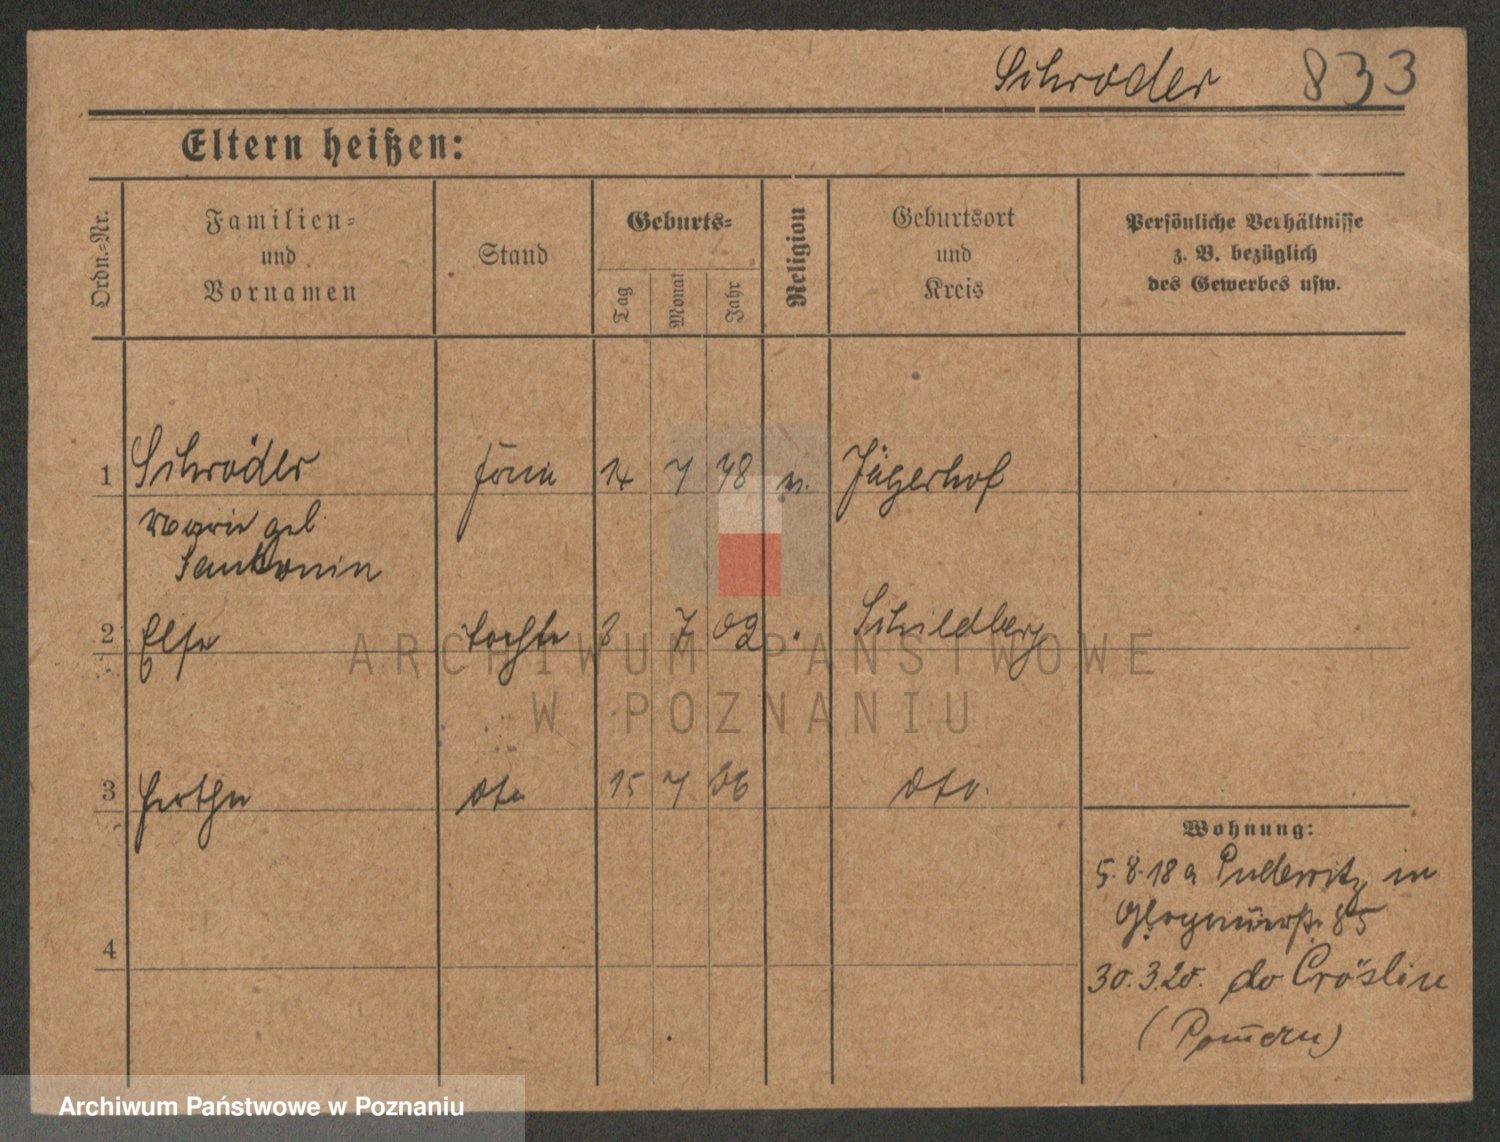 Schröder 833
Eltern heißen:
Ordn.-Nr.
Familien-
und
Vornamen
Stand
Geburts-
Tag
Monat
Jahr
Religion
Geburtsort
und
Kreis
Persönliche Verhältnisse
z. B. bezüglich
des Gewerbes usw.
1 Schröder 14 7 78 Jägerhof
Marie geb
2 Else Tochter 8 7 02 Schildberg
3 Herthe dto 15 7 06 dto.
4
Wohnung:
5.8.18 a Pudewitz in
Glogauerstr. 85
30.3.20. do Cröslin
(Pom̄ern)
ARCHIWUM PAŃSTWOWE
W POZNANIU
Archiwum Państwowe w Poznaniu